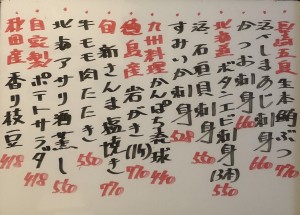 生本鮪ぶつ 770
活〆しまあじ刺身 660
かつお刺身 660
北海道 ボタンエビ刺身(3本) 550
活石垣貝刺身 550
すみいか刺身 528
九州料理 かんぱち琉球 440
徳島産 岩がき(1ケ) 770
旬 新さんま塩焼き 770
牛モモ肉たたき 550
北海アサリ酒蒸し 550
自家製 ポテトサラダ 418
秋田産 香り枝豆 418